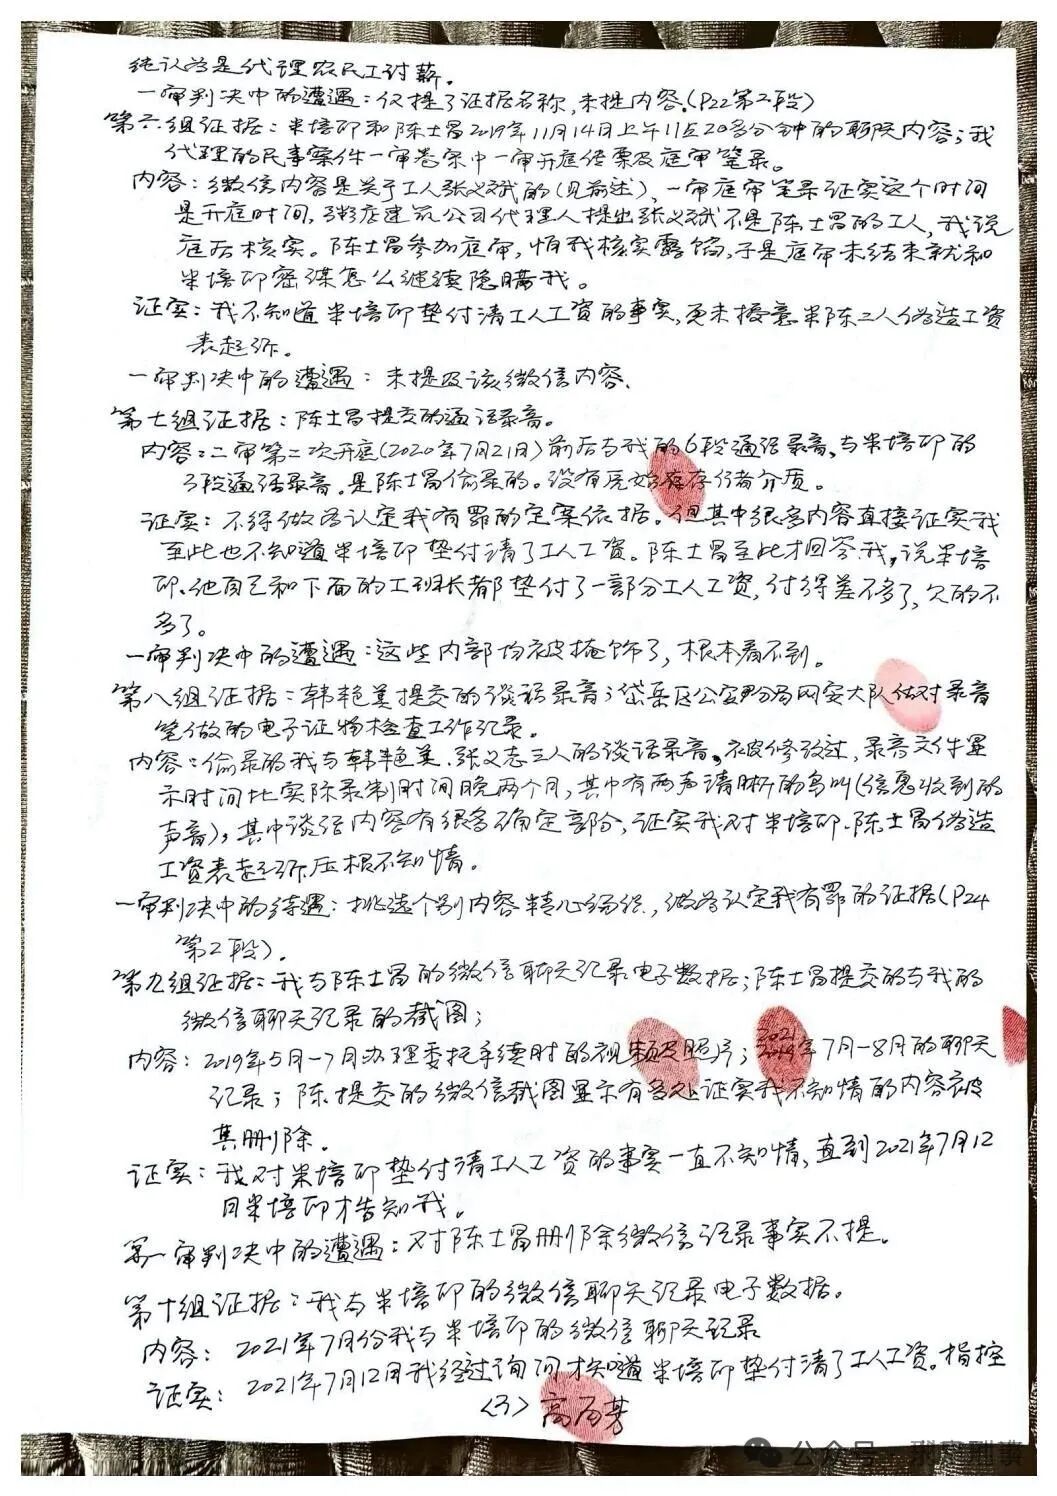 纯认为是代理农民工讨薪。
一审判决中的遭遇：仅提了证据名称，未提内容。(P22第二段)
第六组证据：毕培印和陈士昌2019年11月14日上午11点20多分钟的聊天内容；我
代理的民事案件一审卷宗中一审开庭传票及庭审笔录。
内容：微信内容是关于工人张义斌的(见前述)，一审庭审笔录证实这个时间
是开庭时间，建筑公司代理人提出张义斌不是陈士昌的工人，我说
庭后核实。陈士昌参加庭审，怕我核实露馅，于是庭审未结束就和
毕培印密谋怎么继续隐瞒我。
证实：我不知道毕培印垫付清工人工资的事实，更未授意毕陈二人伪造工资
表起诉。
一审判决中的遭遇：未提及该微信内容。
第七组证据：陈士昌提交的通话录音。
内容：二审第二次开庭(2020年7月21日)前后与我的6段通话录音，与毕培印的
3段通话录音。是陈士昌偷录的。没有原始存储介质。
证实：不得做为认定我有罪的定案依据。但其中很多内容直接证实我
至此也不知道毕培印垫付清了工人工资。陈士昌至此才回答我，说毕培
印、他自己和下面的工班长都垫付了一部分工人工资，付得差不多了，欠的不
多了。
一审判决中的遭遇：这些内部均被掩饰了，根本看不到。
第八组证据：韩艳美提交的谈话录音；岱岳区公安分局网安大队做对录音
笔做的电子证物检查工作记录。
内容：偷录的我与韩艳美、张义志三人的谈话录音，被修改过，录音文件显
示时间比实际录制时间晚两个月，其中有两声清晰的鸟叫(信息收到的
声音)，其中谈话内容有很多确定部分，证实我对毕培印、陈士昌伪造
工资表起诉压根不知情。
一审判决中的待遇：挑选个别内容精心编织，做为认定我有罪的证据(P24
第2段)。
第九组证据：我与陈士昌的微信聊天记录电子数据；陈士昌提交的与我的
微信聊天记录的截图；
内容：2019年5月-7月办理委托手续时的视频及照片；2021年7月-8月的聊天
记录；陈提交的微信截图显示有多处证实我不知情的内容被
其删除。
证实：我对毕培印垫付清工人工资的事实一直不知情，直到2021年7月12
日毕培印才告知我。
一审判决中的遭遇：对陈士昌删除微信记录事实不提。
第十组证据：我与毕培印的微信聊天记录电子数据。
内容：2021年7月份我与毕培印的微信聊天记录
证实：2021年7月12日我经过询问才知道毕培印垫付清了工人工资。指控
(3) 高丙芳
公众号